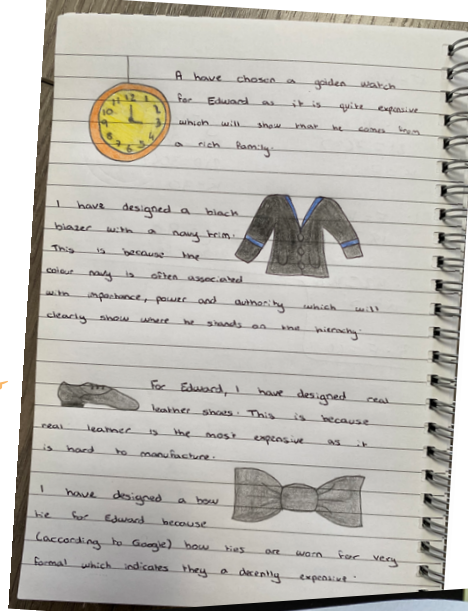 11 12 1
10 2
9 3
8 4
7 6 5
A have chosen a golden watch
for Edward as it is quite expensive
which will show that he comes from
a rich family.
I have designed a black
blazer with a navy trim.
This is because the
colour navy is often associated
with importance, power and authority which will
clearly show where he stands on the hierachy.
For Edward, I have designed real
leather shoes. This is because
real leather is the most expensive as it
is hard to manufacture.
I have designed a bow
tie for Edward because
(according to Google) bow ties are worn for very
formal which indicates they a decently expensive.